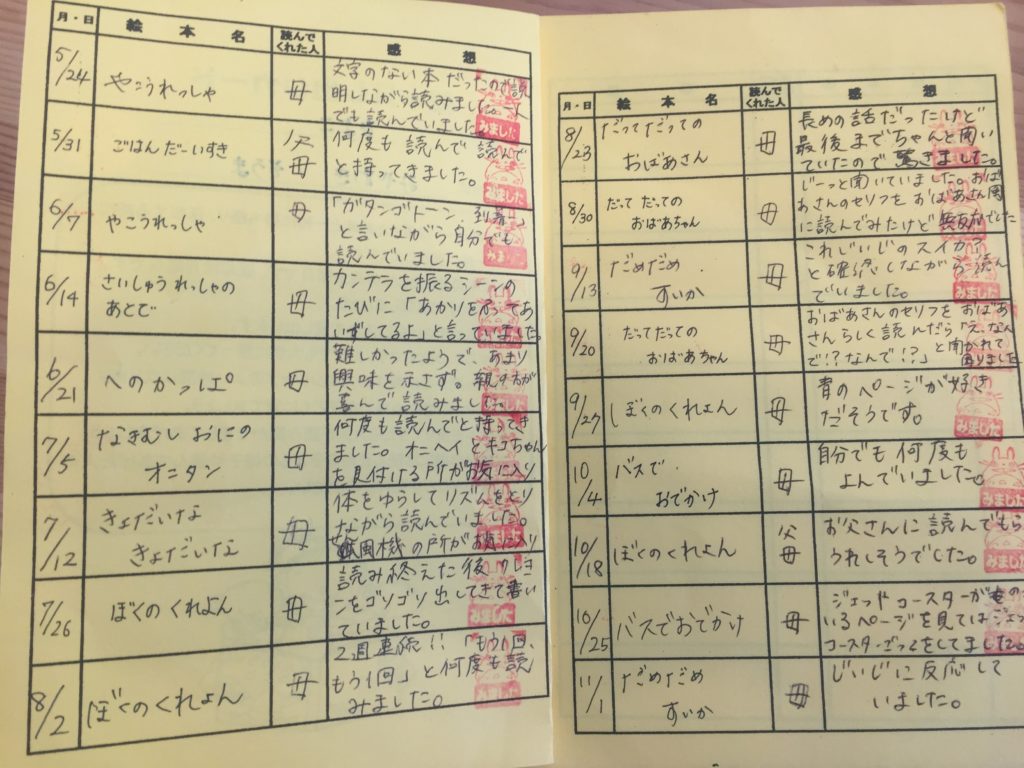 月・日 絵本名 読んでくれた人 感想
5/24 やこうれっしゃ 母
文字のない本だったので説
明しながら読みました。一人
でも読んでいました
みました
5/31 ごはんだーいすき 父 母
何度も読んで 読んで
と持ってきました。
みました
6/7 やこうれっしゃ 母
「ガタンゴトーン、到着〜」
と言いながら自分でも
読んでいました。
みました
6/14 さいしゅうれっしゃの
あとで 母
カンテラを振るシーンの
たびに「あかりをふってあ
いずしてるよ」と言っていました
6/21 へのかっぱ 母
難しかったようで、あまり
興味を示さず。親の方が
喜んで読みました。
7/5 なきむし おにの
オニタン 母
何度も読んでと持ってき
ました。オニヘイとキュちゃん
を見付ける所がお気に入り
7/12 きょだいな
きょだいな 母
体をゆらしてリズムをとり
ながら読んでいました。
扇風機の所がお気に入り
7/26 ぼくのくれよん 母
読み終えた後クレヨ
ンをゴリゴリ出してきて書い
ていました。
みました
8/2 ぼくのくれよん 母
2週連続!!「もう1回、
もう1回」と何度も読
みました。
みました
月・日 絵本名 読んでくれた人 感想
8/23 だってだっての
おばあさん 母
長めの話だったけど
最後までちゃんと聞い
ていたので驚きました。
8/30 だって だっての
おばあちゃん 母
じーっと聞いていました。おば
あさんのセリフをおばあさん風
に読んでみたけど無反応でした
9/13 だめだめ
すいか 母
これじいじのスイカ?
と確認しながら読ん
でいました。
みました
9/20 だってだっての
おばあちゃん 母
おばあさんのセリフをおばあ
さんらしく読んだら「え、なん
で!?なんで!?」と聞かれて
困りました
9/27 ぼくのくれよん 母
青のページが好き
だそうです。
みました
10/4 バスで
おでかけ 母
自分でも何度も
よんでいました。
みました
10/18 ぼくのくれよん 父 母
お父さんに読んでもら
うれしそうでした。
みました
10/25 バスでおでかけ 母
ジェットコースターが
いるページを見てはジェット
コースターごっこをしてました。
11/1 だめだめ
すいか 母
じいじに反応して
いました。